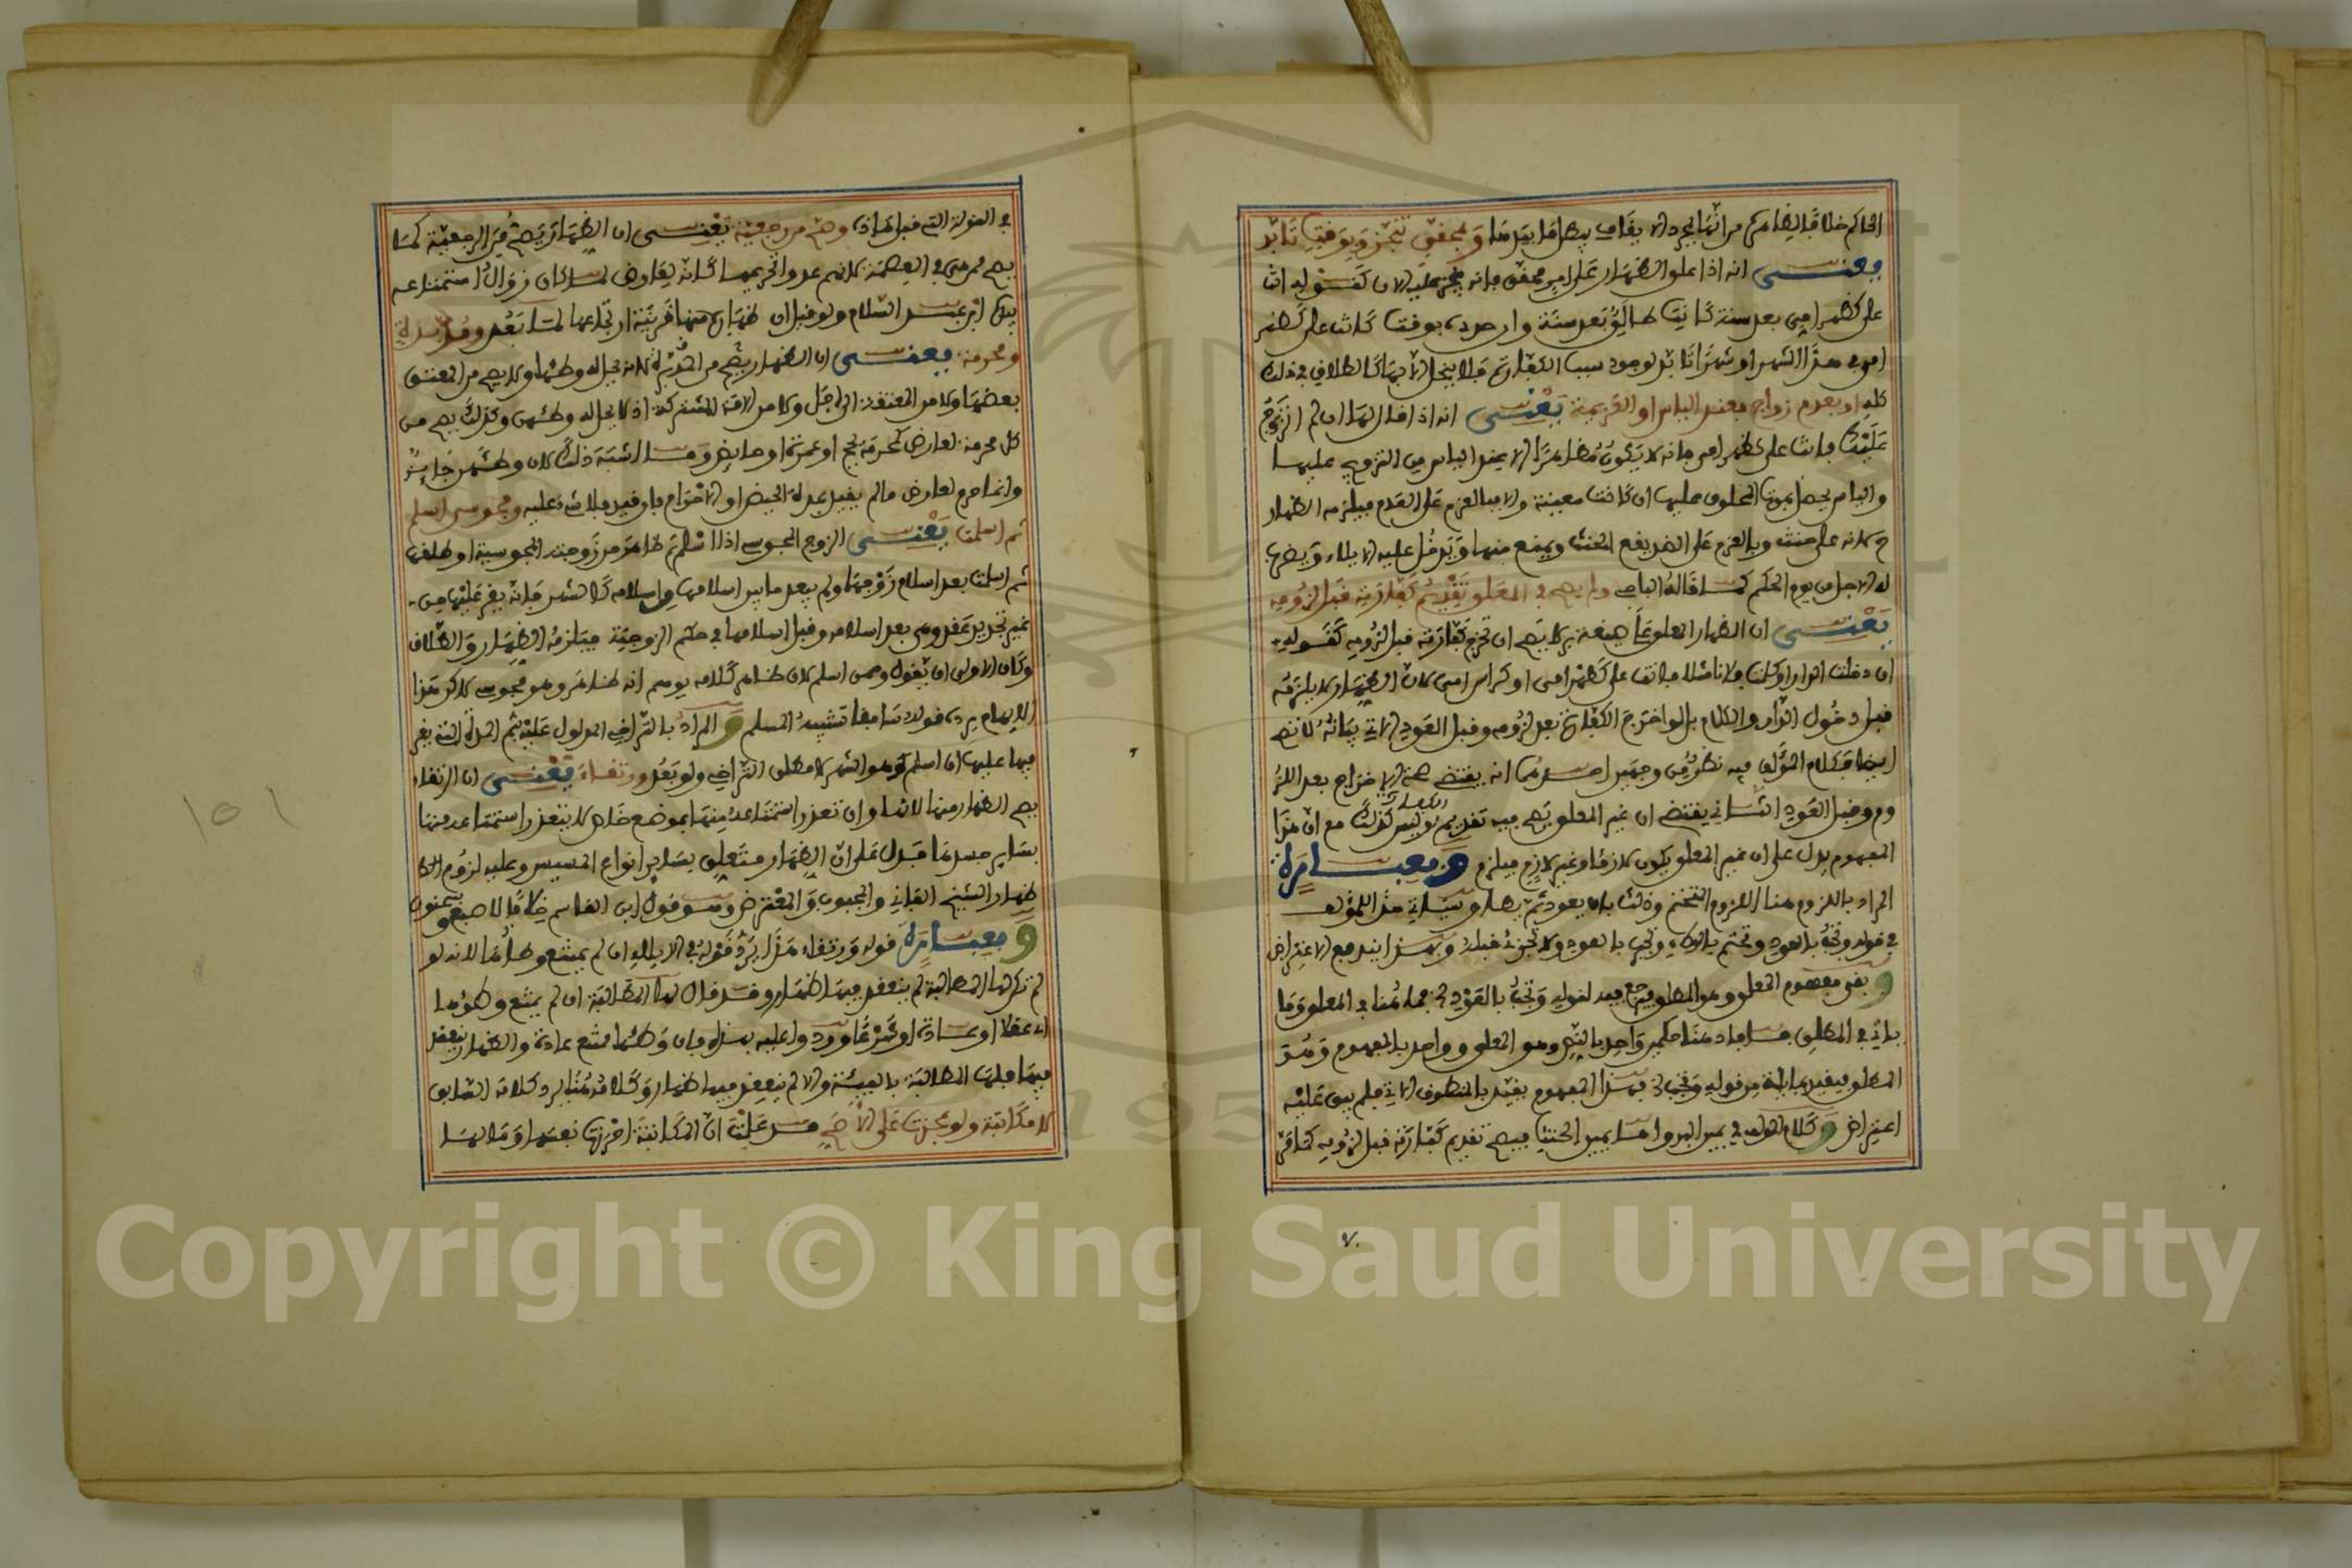 الحاكم خلافا لظاهر من انها بمجرد الا يقاف يطا ما بعدها وبمحقق تنجز وبوقت تابد
يعني انه اذا علق الظهار على امر محقق فانه ينجز عليه الان كقوله انت
علي كظهر امي بعد سنة كانت طالق بعد سنة وان حدده بوقت كانت علي كظهر
امي في هذا الشهر او شهرا تابد لوجود سبب الكفارة فلا ينحل الا بها كالطلاق في ذلك
كله او بعدم زواج فعند الياس او العزيمة يعني انه اذا قال لها ان لم اتزوج
عليك فانت علي كظهر امي فانه لا يكون مظاهرا الا عند الياس من التزويج عليها
والياس يحصل بموت المحلوف عليها ان كانت معينة والا فبالعزم على العدم فيلزمه الظهار
ح لانه على حنث وبالعزم على الضد يقع الحنث ويمنع منها ويدخل عليه الايلاء ويضرب
له الاجل من يوم الحكم كما قاله الباجي ولم يصح في المعلق تقديم كفارته قبل لزومه
يعني ان الظهار المعلق على صيغة بر لا يصح ان تخرج كفارته قبل لزومه كقوله
ان دخلت الدار او كلمت فلانا مثلا فانت علي كظهر امي او كراس امي لان الظهار لا يلزمه
قبل دخول الدار والكلام بل لو اخرج الكفارة بعد لزومه وقبل العود الاتي بيانه لا تصح
ايضا فكلام المؤلف فيه نظر من وجهين احدهما انه يقتضي صحة الاخراج بعد اللز
وم وقبل العود الثاني يقتضي ان غير المعلق يصح فيه تقديم الكفارة وليس كذلك مع ان هذا
المفهوم يدل على ان غير المعلق يكون لازما وغير لازم فيلزم وبعبارة
المراد باللزوم هنا اللزوم المتحتم وذلك بان يعود ثم يطا وسياتي هذا للمؤلف
في قوله وتجب بالعود وتتحتم بالوطء وتجب بالعود ولا تجزئ قبله وبهذا يندفع الاعتراض
و بقي مفهوم المعلق وهو المطلق فيرجع فيه لقوله وتجب بالعود الخ فما هنا في المعلق وما
ياتي في المطلق فافاد هنا حكمين واحد بالنص وهو المعلق وواحد بالمفهوم وهو
المطلق فيقيد بما ياتي من قوله وتجب الخ فهذا المفهوم يقيد بالمنطوق الاتي فلم يبق عليه
اعتراض و كلام المؤلف في يمين البر واما يمين الحنث فيصح تقديم كفارته قبل لزومه كما في
في المقولة التي قبل هاذه وصح من رجعية يعني ان الظهار يصح من الرجعية كما
يصح ممن هي في العصمة
بيده ابن عبد السلام ولو قيل ان ظهاره منها قرينة ارتجاعها لما بعد ومدبرة
ومحرمة يعني ان الظهار يصح من المدبرة لانه يحل له وطئها ولا يصح من المعتق
بعضها ولا من المعتقة الى اجل ولا من الامة المشتركة اذ لا يحل له وطئهن وكذلك يصح من
كل محرمة لعارض كمحرمة بحج او عمرة او حايض وما اشبه ذلك لان وطئهن جايز
وانما حرم لعارض ما لم يقيد بمدة الحيض او الاحرام فان قيد فلا شيء عليه ومجوسي اسلم
ثم اسلمت يعني الزوج المجوسي اذا اسلم ثم ظاهر من زوجته المجوسية او طلقها
ثم اسلمت بعد اسلام زوجها ولم يبعد ما بين اسلامها واسلامه كالشهر فانه يقر عليها من
غير تجديد عقد وهي بعد اسلامه وقبل اسلامها في حكم الزوجية فيلزمه الظهار والطلاق
وكان الاولى ان يقول ومن اسلم لان ظاهر كلامه يوهم انه ظاهر وهو مجوسي لاكن هذا
الايهام يرده قوله سابقا تشبيه المسلم و المراد بالتراخي المدلول عليه بثم المدة التي يقر
فيها عليها ان اسلم وهو الشهر لا مطلق التراخي ولو بعد ورتقاء يعني ان الرتقاء
يصح الظهار منها لانها وان تعذر استمتاعه منها بموضع خاص لا يتعذر استمتاعه منها
بساير جسدها فدل على ان الظهار متعلق بساير انواع المسيس وعليه لزوم
ظهار الشيخ الفاني والمجبوب والمعترض وهو قول ابن القاسم خلافا لاصبغ وسحنون
و بعبارة قوله ورتقاء هذا يرد قوله في الايلاء ان لم يمتنع وطئها لانه لو
لم تكن لها المطالبة لم ينعقد فيها ظهار وقد قال لها المطالبة ان لم يمتنع وطؤها
اي عقلا او عادة او شرعا وردوا عليه بهذه فان وطئها ممتنع عادة والظهار ينعقد
فيها فلها المطالبة بالفيئة والا لم ينعقد فيها ظهار وكلامه هنا يرد كلامه السابق
لا مكاتبة ولو عجزت على الاصح قد علمت ان المكاتبة احرزت نفسها وما لها
٧٠
١٥١
Copyright © King Saud University
195